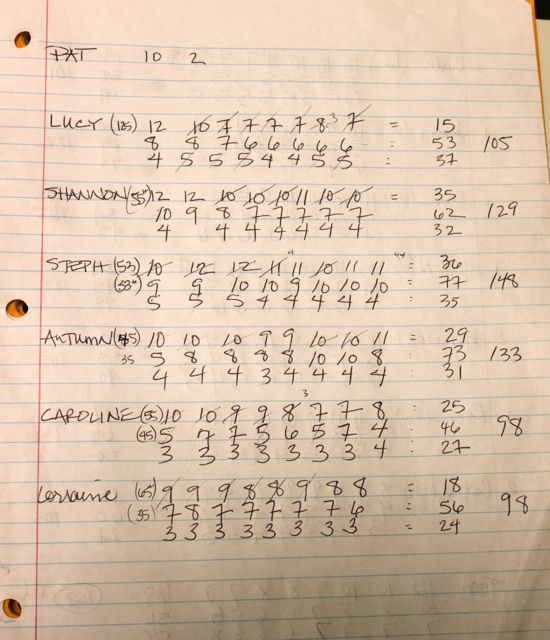 PAT 10 2
LUCY (125) 12 10 7 7 7 7 8 3 7 = 15
8 8 7 6 6 6 6 6 : 53 /105
4 5 5 5 4 4 5 5 : 37
SHANNON (55") 12 12 10 10 10 11 10 10 = 35
10 9 8 7 7 7 7 7 62 /129
4 4 4 4 4 4 4 32
STEPH (53) 10 12 12 11 11 10 11 11 = 36
(53") 9 9 10 10 9 10 10 10 = 77 /148
5 5 5 4 4 4 4 4 : 35
AUTUMN (45) 10 10 10 9 9 10 10 11 = 29
35 5 8 8 8 8 10 10 8 : 73 /133
4 4 4 3 4 4 4 4 : 31
3
CAROLINE (55) 10 10 9 9 8 7 7 8 : 25
(45) 5 7 7 5 6 5 7 4 : 46 98
3 3 3 3 3 3 3 4 : 27
Lorraine (65) 9 9 9 8 8 9 8 8 = 18
(35) 7 8 7 7 7 7 7 6 = 56 98
3 3 3 3 3 3 3 3 = 24